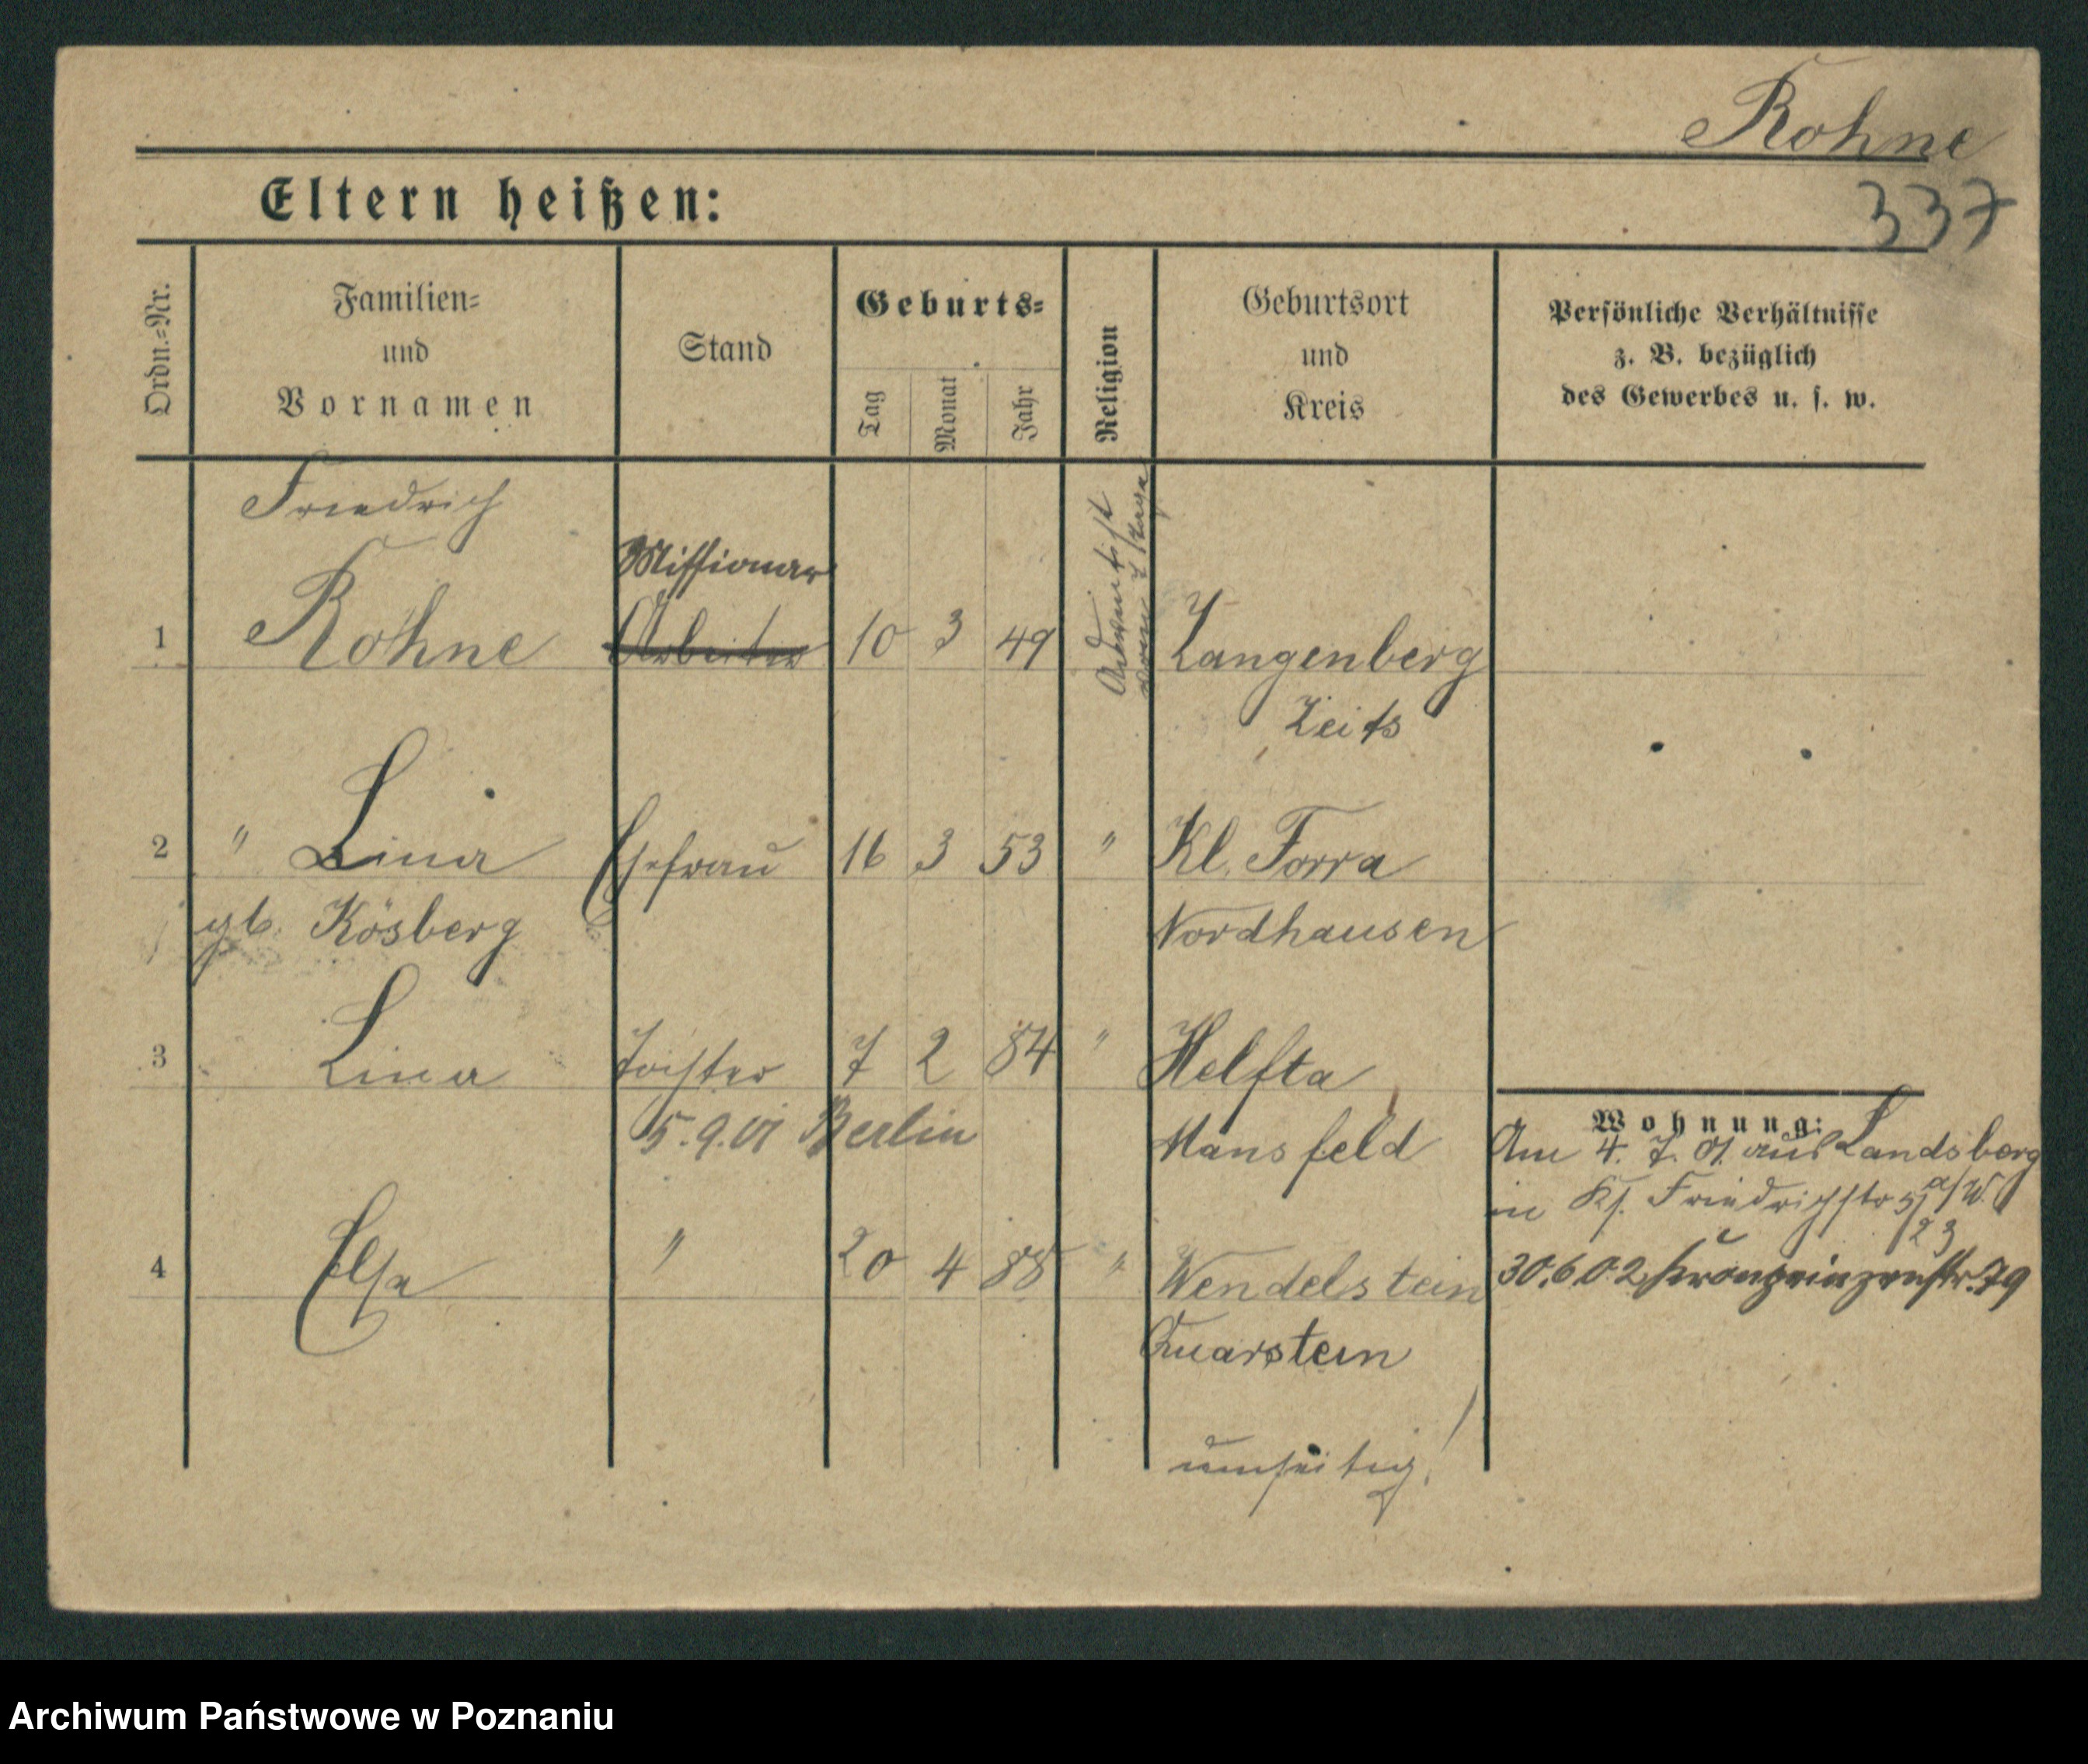 Rohne
337
Eltern heißen:
Ordn.-Nr.
Familien-
und
Vornamen
Stand
Geburts-
Tag
Monat
Jahr
Religion
Geburtsort
und
Kreis
Persönliche Verhältnisse
z. B. bezüglich
des Gewerbes u. s. w.
Friedrich
Missionar
1 Rohne Arbeiter 10 3 49 Adventist vom 7 Tage Langenberg
Zeits
2 " Lina Ehefrau 16 3 53 " Kl. Forra
gb. Kösberg Nordhausen
3 Lina Tochter 7 2 84 " Helfta
5.9.01 Berlin Mansfeld
Wohnung:
Am 4. 7. 01. aus Landsberg
a/W.
in Friedrichstr
23
4 Elsa " 20 4 88 " Wendelstein
30.6.02 Kronprinzenstr. 79
Quarstein
umseitig!
Archiwum Państwowe w Poznaniu